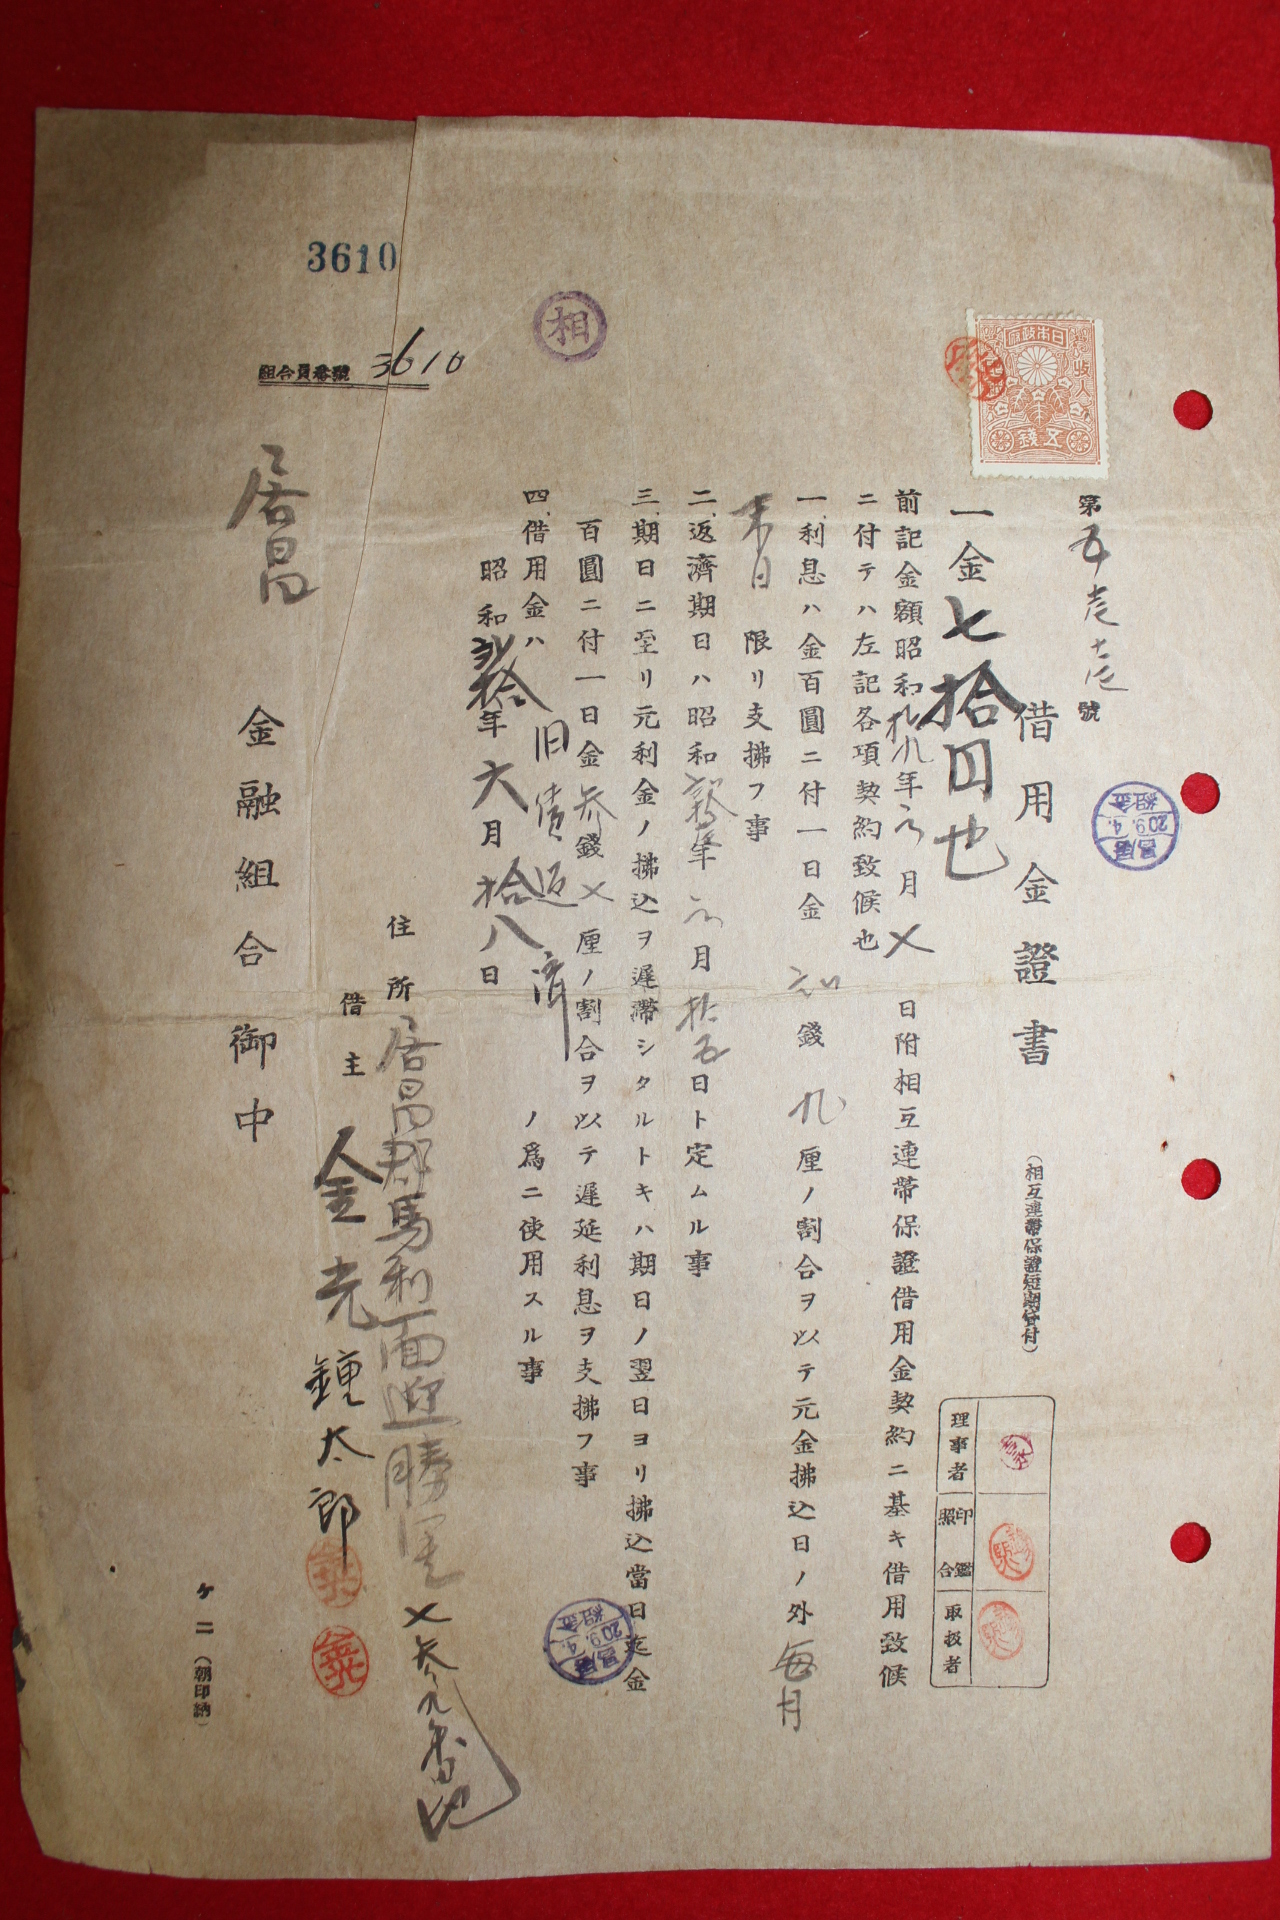 第五壱七壱號
借用金證書 (相互連帶保證短期貸付)
日本政府
收入
五錢
一金七拾四也
前記金額昭和拾九年 月 日附相互連帶保證借用金契約ニ基キ借用致候
ニ付テハ左記各項契約致候也
一、利息ハ金百圓ニ付一日金 錢九厘ノ割合ヲ以テ元金拂込日ノ外每月
末日限リ支拂フ事
二、返濟期日ハ昭和 年 月拾五日ト定ムル事
三、期日ニ至リ元利金ノ拂込ヲ遲滯シタルトキハ期日ノ翌日ヨリ拂込當日迄金
百圓ニ付一日金參錢 厘ノ割合ヲ以テ遲延利息ヲ支拂フ事
四、借用金ハ旧債返濟ノ爲ニ使用スル事
昭和貳拾年六月拾八日
住所 居昌郡馬利面迎勝里七參九番地
借主 金光鍾太郎
居昌金融組合御中
組合員番號 3610
3610
相
理事者
印鑑照合
取扱者
居昌
20.9.4.
金組
居昌
20.9.4.
金組
ケ二(朝印納)